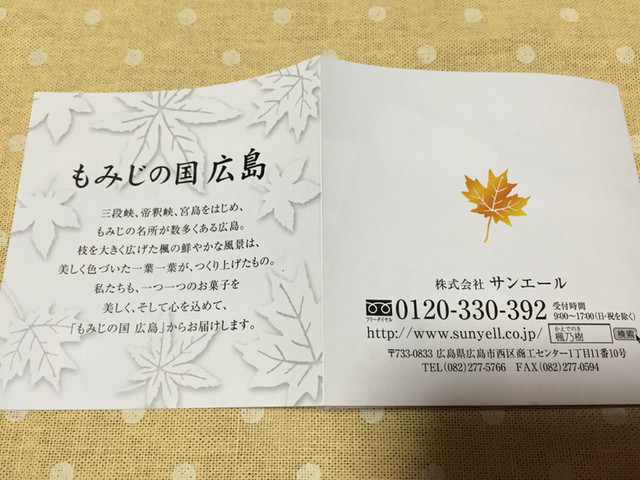 もみじの国 広島
三段峡、帝釈峡、宮島をはじめ、
もみじの名所が数多くある広島。
枝を大きく広げた楓の鮮やかな風景は、
美しく色づいた一葉一葉が、つくり上げたもの。
私たちも、一つ一つのお菓子を
美しく、そして心を込めて、
「もみじの国 広島」からお届けします。
株式会社 サンエール
フリーダイヤル 0120-330-392 受付時間
9:00~17:00(日・祝を除く)
http://www.sunyell.co.jp/ かえでのき 楓乃樹 検索
〒733-0833 広島県広島市西区商工センター1丁目11番10号
TEL(082)277-5766 FAX(082)277-0594